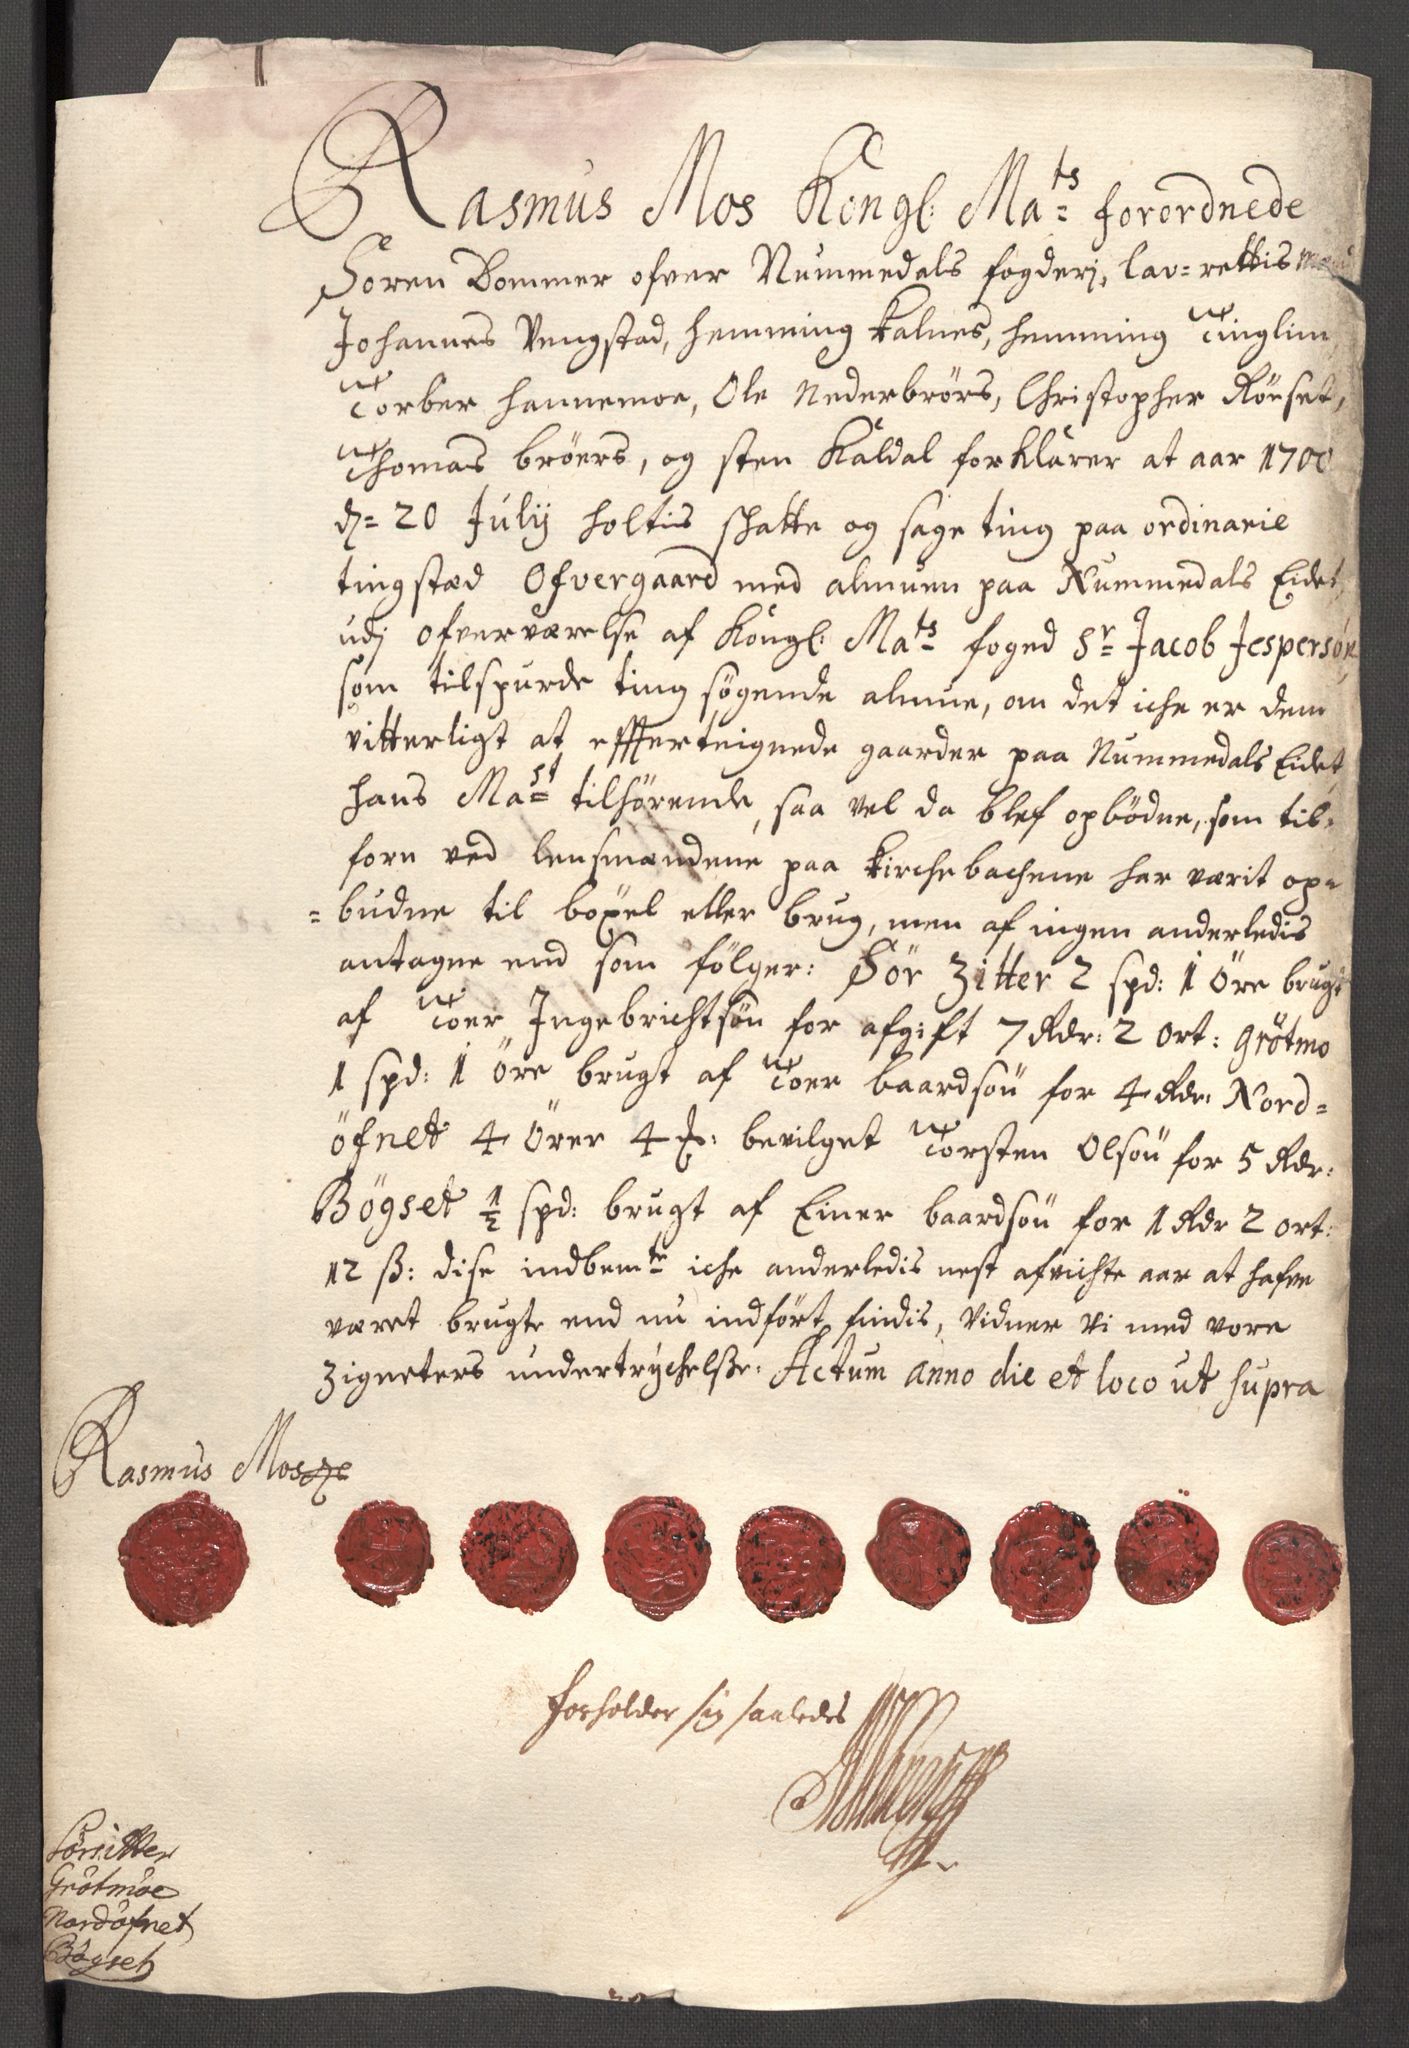 Rasmus Mos Kongl: Ma:ts forordnede
Soren Dommer ofver Nummedals fogderj, lav=rettis mænd
Johannes Vengstad, hemming Kalnes, hemming Tinglim,
Torber hannemoe, Ole Nederbrörs, Christopher Röuset,
Thomas bröers, og sten Kaldal forklarer at aar 1700
d= 20 Julij holtis skatte og sage ting paa ordinarie
tingstæd Ofvergaard med almuen paa Nummedals Eidet,
udj ofverværelse af Kongl: Ma:ts foged Sr= Jacob Jespersøn,
som tilspurde ting søgende almue, om det iche er dem
vitterligt at effterteignede gaarder paa Nummedals Eidet,
hans Ma:st tilhörende, saa vel da blef opbödne, som til=
forn ved lensmændene paa Kirchebachene har værit op=
=budne til böxel eller brug, men af ingen anderledis
antagne end som fölger: Sör Zitter 2 spd: 1 Öre brugt
af Toer Ingebrichtsøn for afgift 7 Rdr: 2 ort: Grötmo
1 spd: 1 öre brugt af Toer baardsøn for 4 Rdr: Nord=
öfnet 4 Örer 4 bevilget Torsten Olsøn for 5 Rdr:
Bögset 1/2 spd: brugt af Einer baardsøn for 1 Rdr 2 ort:
12 ß: dise indbemte iche anderledis nest afvichte aar at hafve
været brugte end nu indfört findis, vidner vi med vore
Zigneters undertrychelße. Actum anno die et loco ut supra
Rasmus Mos
forholder sig saaledes
Sörsitter
Grötmöe
Nordöfnet
Bögset